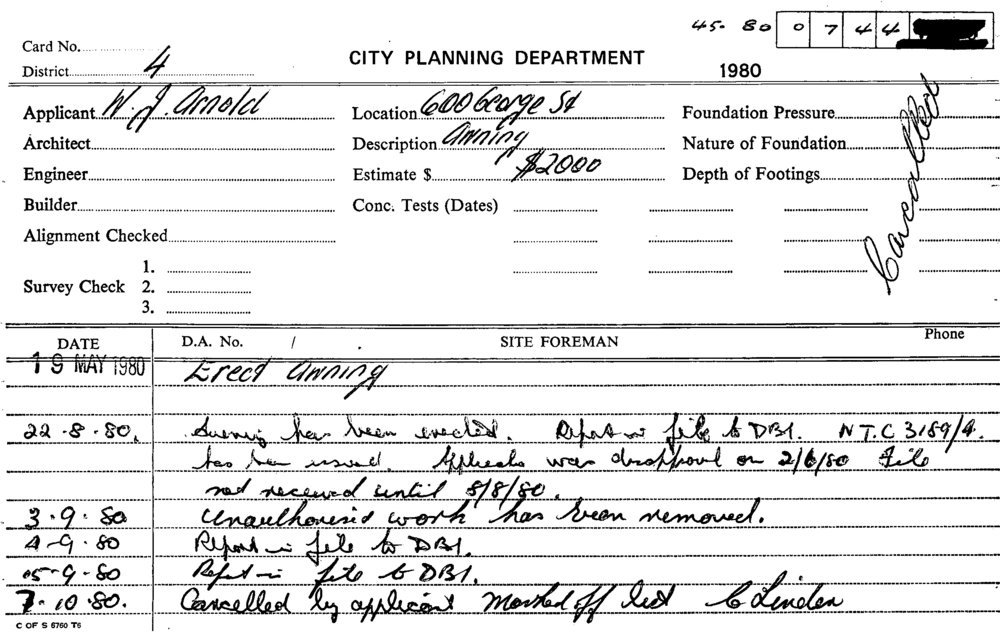 45- 80 0 7 4 4
Card No.
District 4
CITY PLANNING DEPARTMENT
1980
Applicant W. J. Arnold
Location 600 George St
Foundation Pressure
Architect
Description Awning
Nature of Foundation
Engineer
Estimate $ $2000
Depth of Footings
Builder
Conc. Tests (Dates)
Cancelled
Alignment Checked
Survey Check
1.
2.
3.
DATE D.A. No. / . SITE FOREMAN Phone
19 MAY 1980 Erect Awning
22-8-80. has been erected. Report in file to DBI. N.T.C 3189/4.
has been issued. was on 2/6/80 File
not received until 8/8/80.
3-9-80 work has been removed.
4-9-80 Report in file to DBI.
05-9-80 Report in file to DBI.
7-10-80. Cancelled by applicant Marked off list C Linden
C OF S 6760 T6